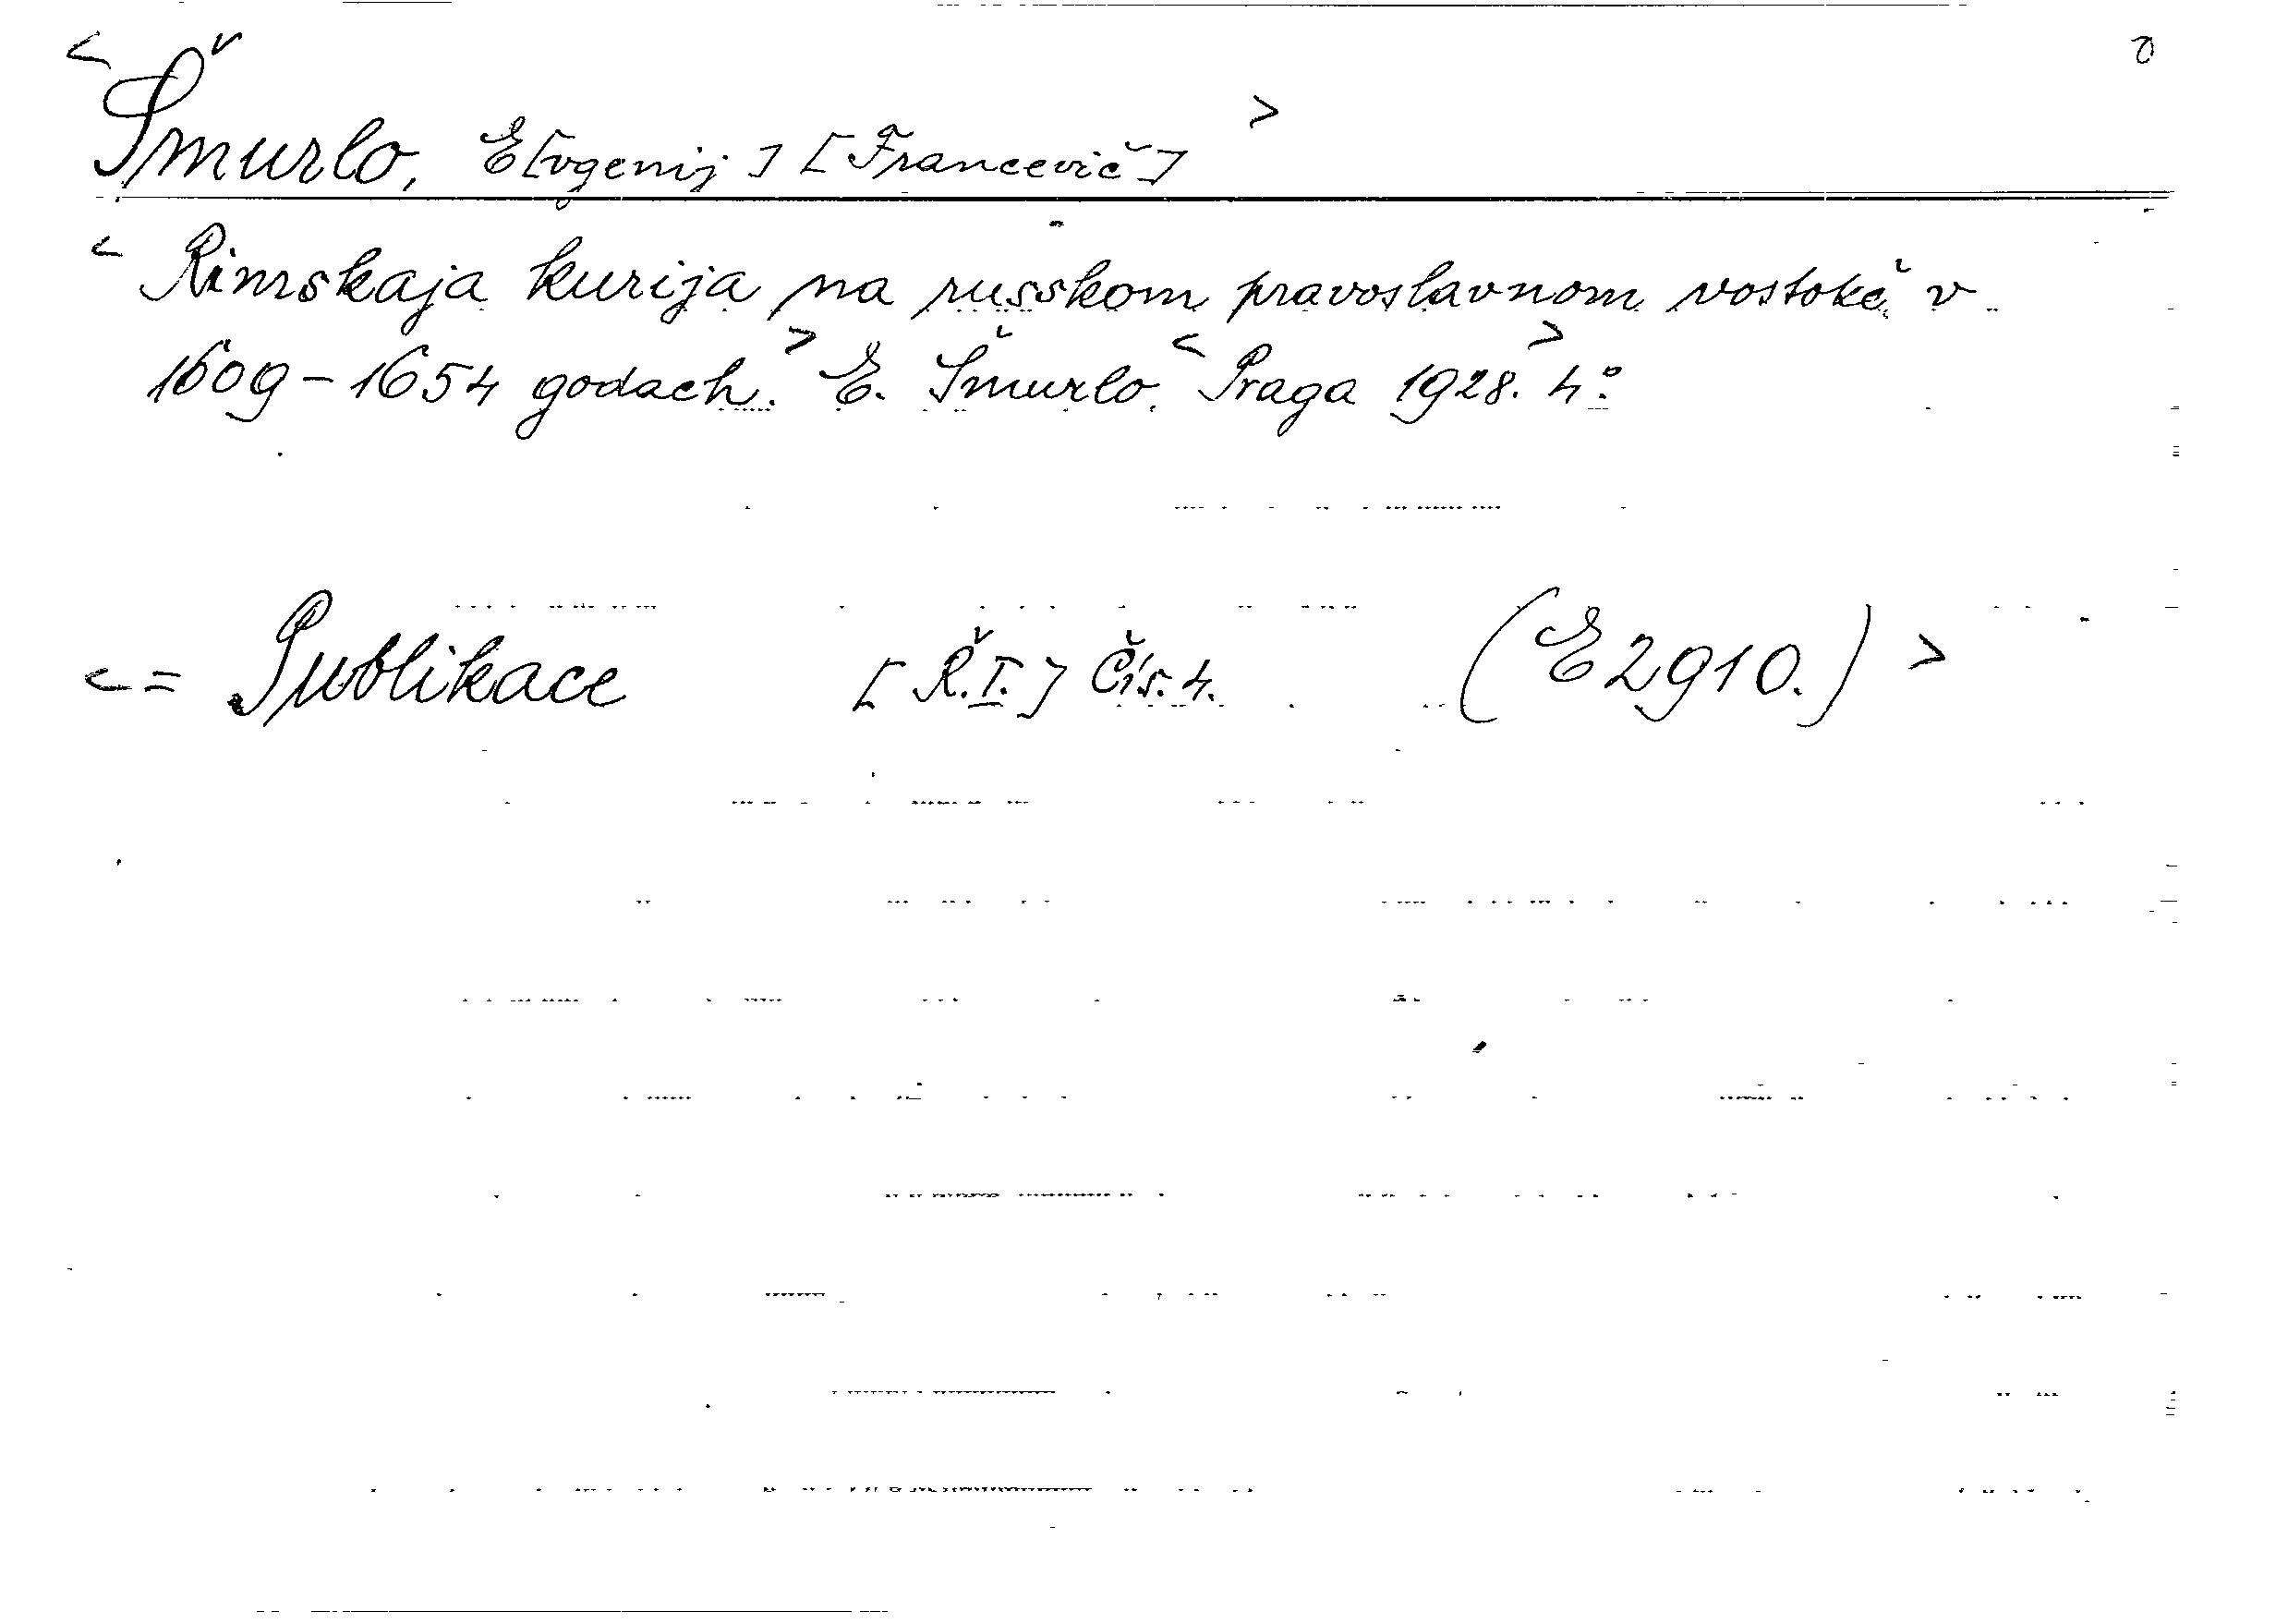 <Šmurlo, E[vgenij] [Francevič]>
<Rimskaja kurija na russkom pravoslavnom vostokě v
1609-1654 godach.> E. Šmurlo. <Praga 1928.> 4°.
<= Publikace [Ř.I.] Čís. 4. (E2910.)>